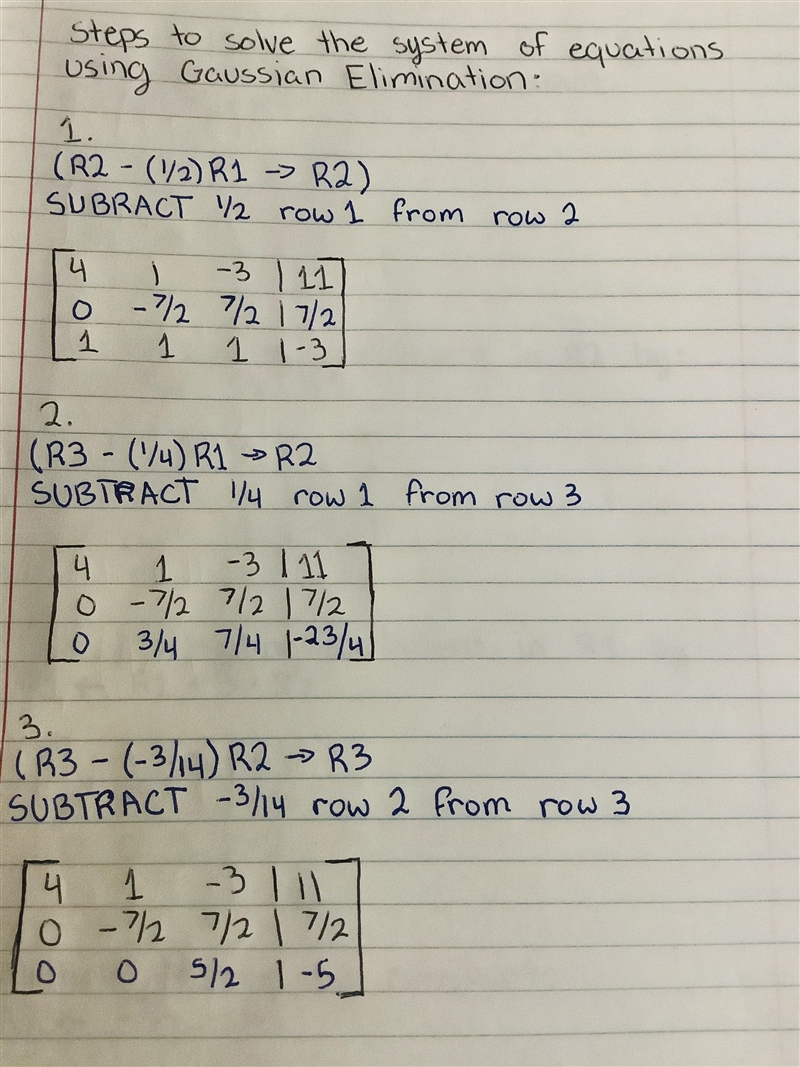 Steps to solve the system of equations
using Gaussian Elimination:
1.
(R2 - (1/2)R1 -> R2)
SUBRACT 1/2 row 1 from row 2
4 1 -3 | 11
0 -7/2 7/2 | 7/2
1 1 1 | -3
2.
(R3 - (1/4) R1 -> R2
SUBTRACT 1/4 row 1 from row 3
4 1 -3 | 11
0 -7/2 7/2 | 7/2
0 3/4 7/4 | -23/4
3.
(R3 - (-3/14) R2 -> R3
SUBTRACT -3/14 row 2 from row 3
4 1 -3 | 11
0 -7/2 7/2 | 7/2
0 0 5/2 | -5